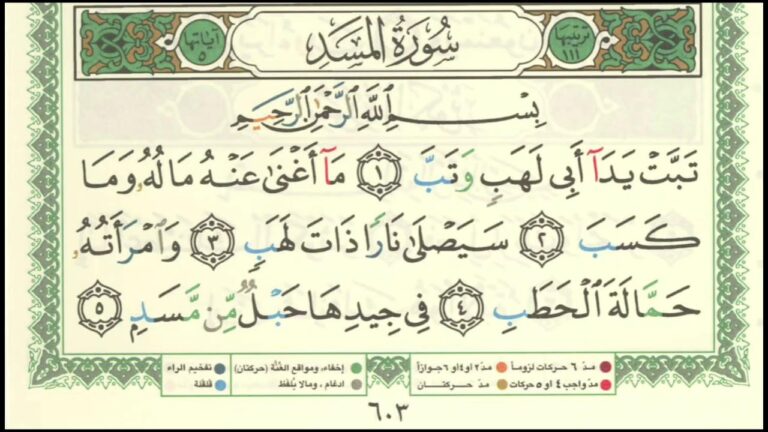 ترتيبها ١١١ سُورَةُ المَسَدِ آياتها ٥
بِسْمِ ٱللَّهِ ٱلرَّحْمَٰنِ ٱلرَّحِيمِ
تَبَّتْ يَدَآ أَبِي لَهَبٍ وَتَبَّ ١ مَآ أَغْنَىٰ عَنْهُ مَالُهُۥ وَمَا
كَسَبَ ٢ سَيَصْلَىٰ نَارًا ذَاتَ لَهَبٍ ٣ وَٱمْرَأَتُهُۥ
حَمَّالَةَ ٱلْحَطَبِ ٤ فِي جِيدِهَا حَبْلٌ مِّن مَّسَدٍ ٥
مدّ ٦ حركات لزوماً مدّ ٢ او ٤ او ٦ جوازاً إخفاء، ومواقع الغُنَّة (حركتان) تفخيم الراء
مدّ واجب ٤ او ٥ حركات مدّ حركتان ادغام، ومالا يُلفظ قلقلة
٦٠٣